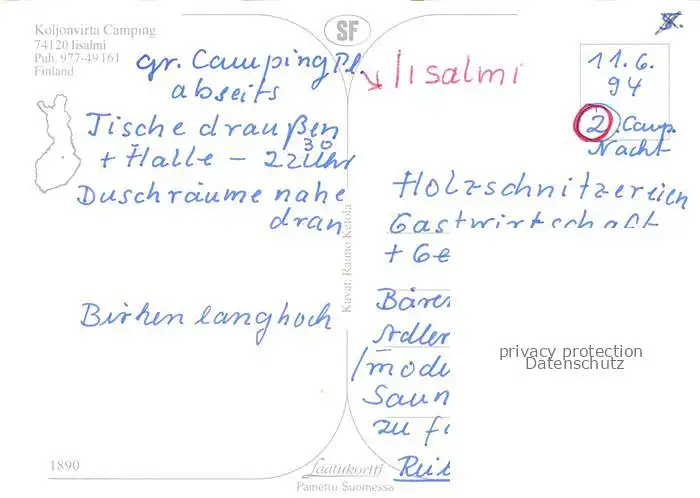 Koljonvirta Camping
74120 Iisalmi
Puh. 977-49161
Finland
SF
gr. Camping Pl
abseits
Tische draußen
+ Halle – 22 30 Uhr
Duschräume nahe
dran
Birken langhoch
1890
Kuvat: Raimo Ketola
Laatukortti
Painettu Suomessa
Iisalmi
11.6.
94
2. Camp.
Nacht
Holzschnitzereien
Gastwirtschaft
+ Ge
Bären
Adler
/mode
Saun
zu fi
Reit
privacy protection
Datenschutz